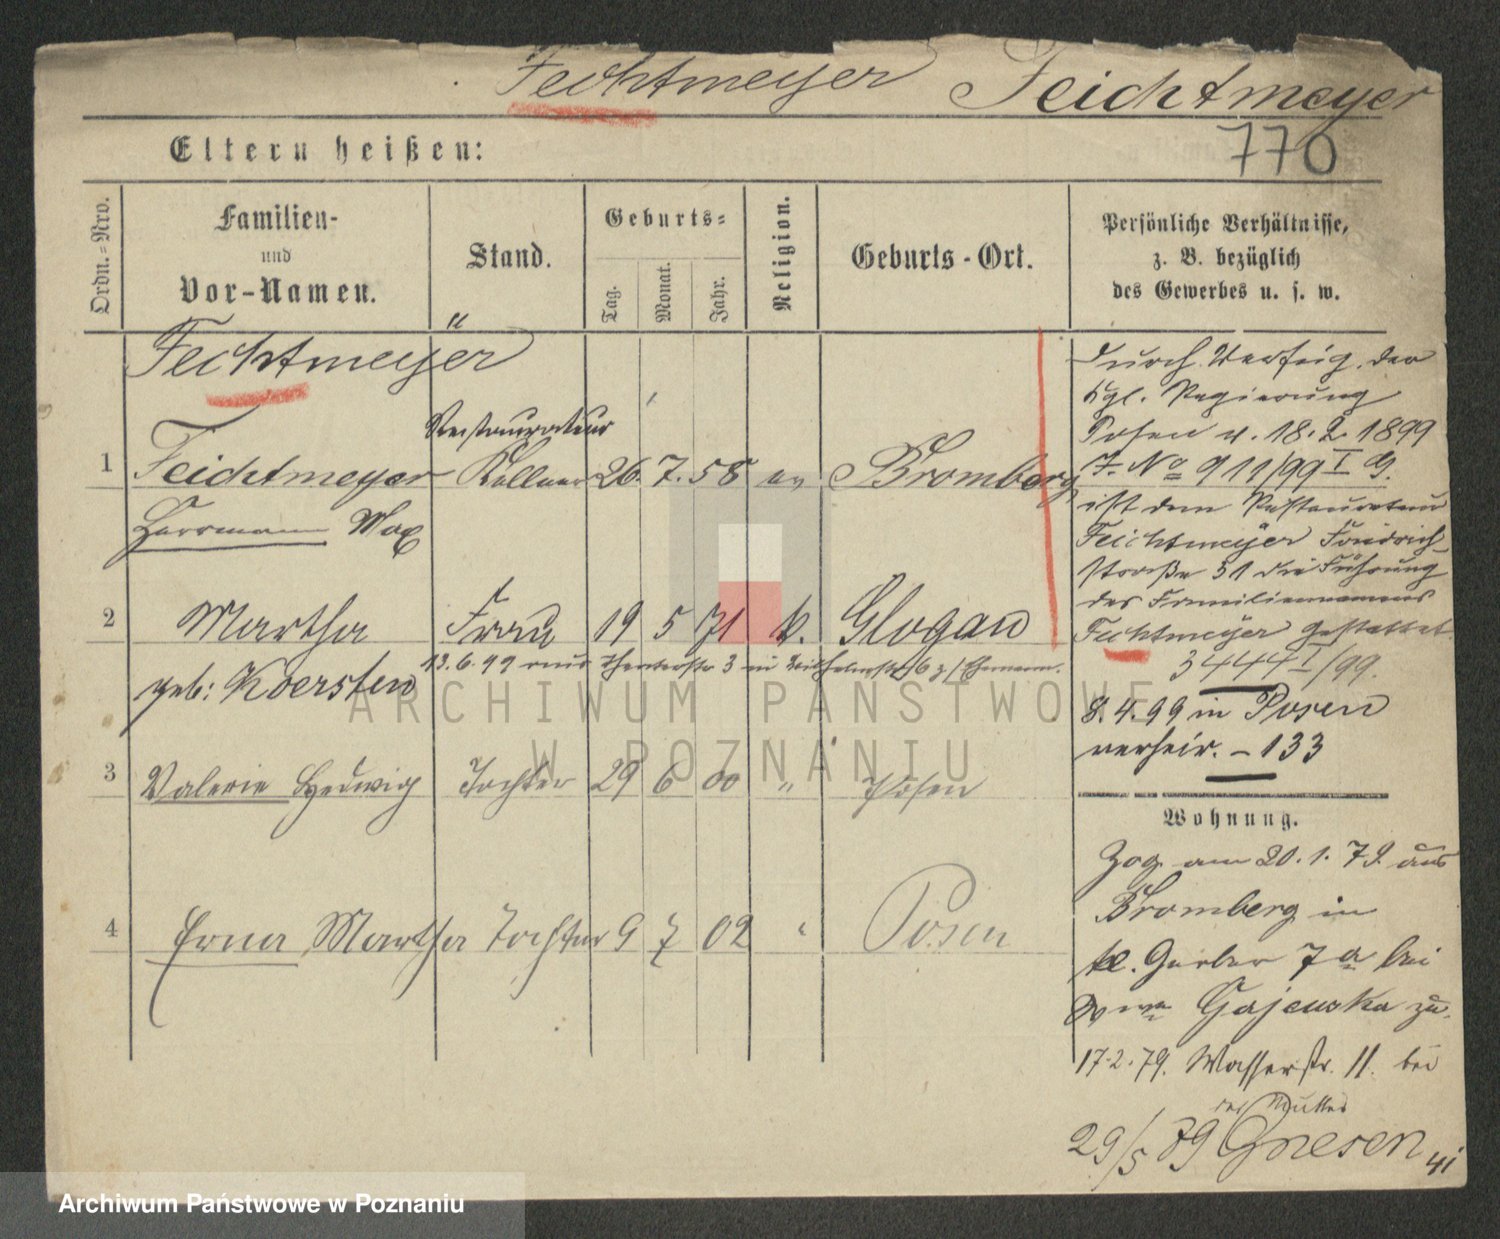 Fechtmeyer Feichtmeyer
770
Eltern heißen:
Ordn.-Nro.
Familien-
und
Vor-Namen.
Stand.
Geburts-
Tag.
Monat.
Jahr.
Religion.
Geburts-Ort.
Persönliche Verhältnisse,
z. B. bezüglich
des Gewerbes u. s. w.
Fechtmeyer
Restaurateur
1 Feichtmeyer Kellner 26. 7. 58 ev Bromberg
Herrmann Max
2 Martha Frau 19 5 71 k. Glogau
geb: Koersten
13.6.99 aus Theaterstr 3 in
3 Valerie Hedwig Tochter 29 6 00 " Posen
4 Erna Martha Tochter 9 7 02 " Posen
durch Verfüg. der
Kgl. Regierung
Posen v. 18.2.1899
J. No 911/99 I G.
ist dem Restaurateur
Feichtmeyer Friedrich-
straße 31 die Führung
des Familiennamens
Fechtmeyer gestattet
3444 I/99.
8.4.99 in Posen
verheir. - 133
Wohnung.
Zog am 20.1.79 aus
Bromberg in
kl. Gerber 7a bei
Wwe Gajewska zu.
17.2.79. Wasserstr. 11. bei
der Mutter
29/5 79 Gnesen
ARCHIWUM PAŃSTWOWE
W POZNANIU
Archiwum Państwowe w Poznaniu